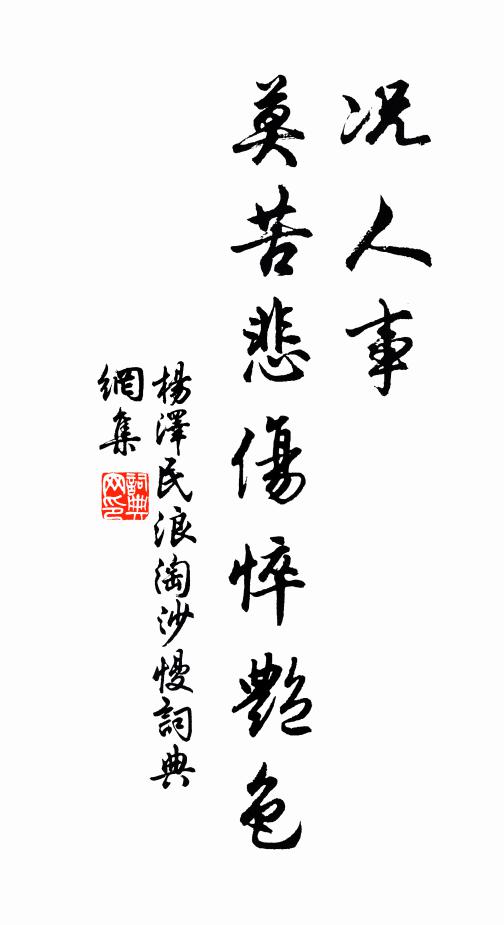 况人事
莫苦悲傷悴艷色
楊澤民浪淘沙慢詞典
網集
詞典
网印